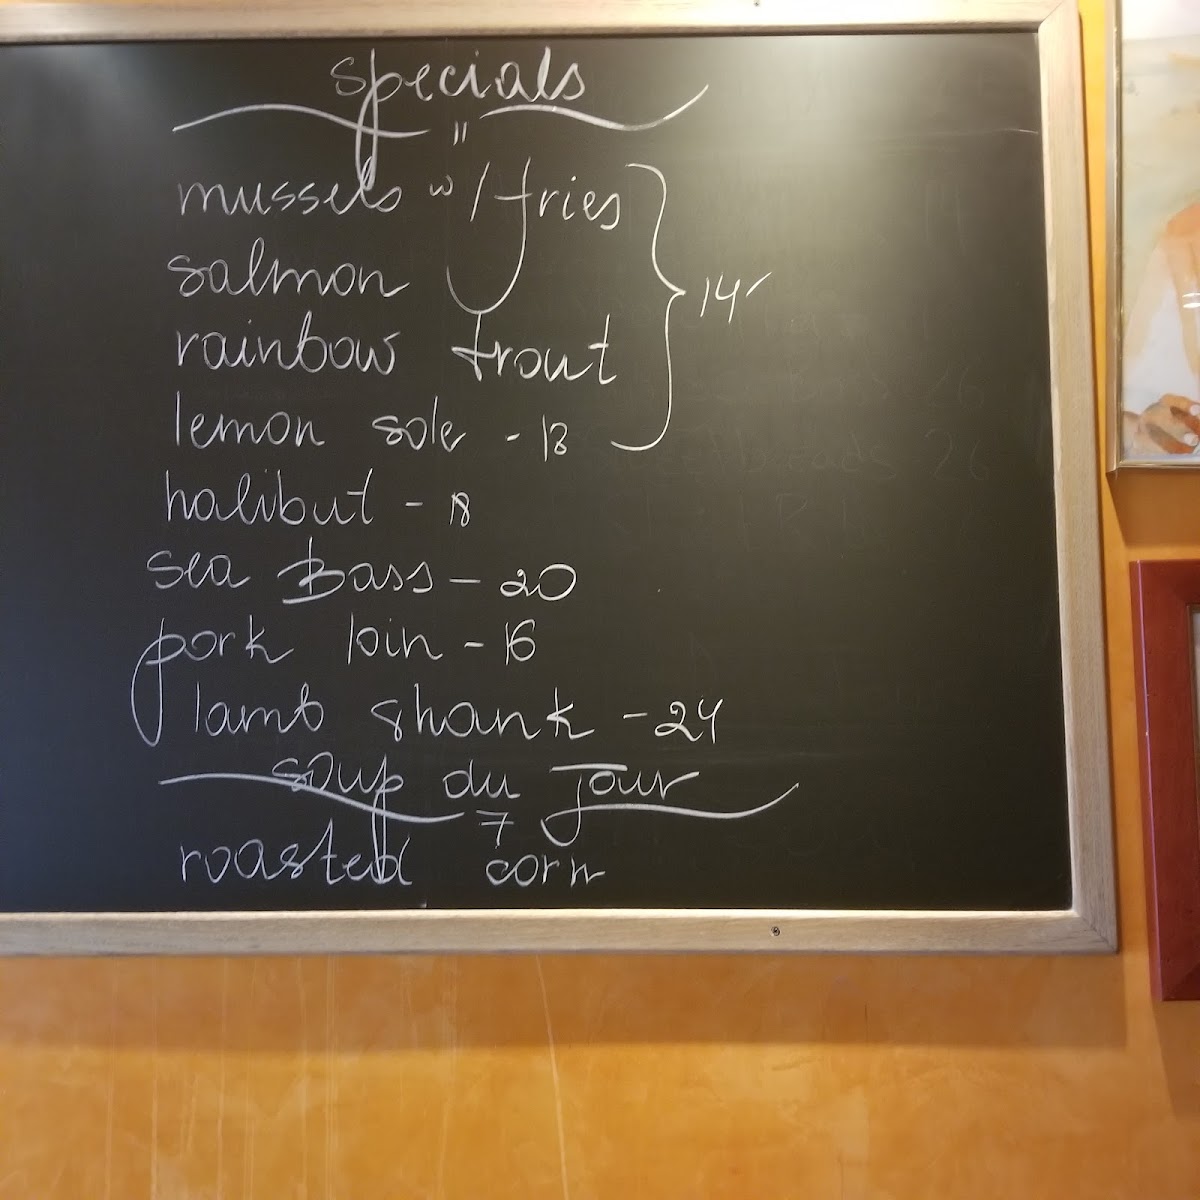 specials
"
mussels w/ fries
salmon
14
rainbow trout
lemon sole - 13
halibut - 18
sea Bass - 20
pork loin - 16
lamb shank - 24
soup du jour
7
roasted corn